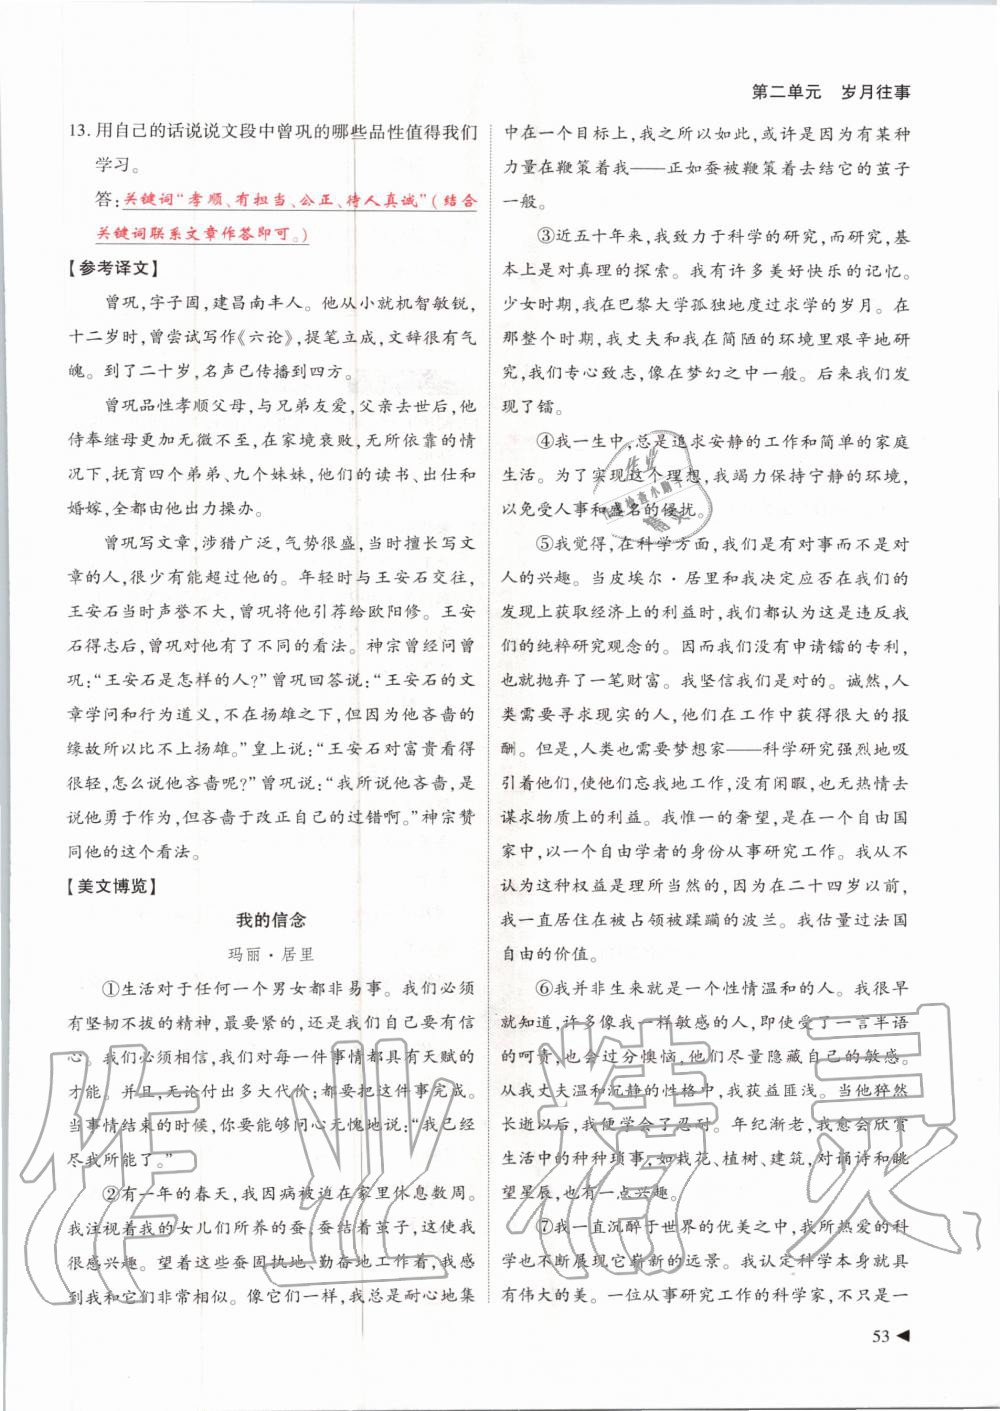 第二单元 岁月往事
13. 用自己的话说说文段中曾巩的哪些品性值得我们
学习。
答:关键词“孝顺、有担当、公正、待人真诚”(结合
关键词联系文章作答即可。)
【参考译文】
曾巩,字子固,建昌南丰人。他从小就机智敏锐,
十二岁时,曾尝试写作《六论》,提笔立成,文辞很有气
魄。到了二十岁,名声已传播到四方。
曾巩品性孝顺父母,与兄弟友爱,父亲去世后,他
侍奉继母更加无微不至,在家境衰败,无所依靠的情
况下,抚育四个弟弟、九个妹妹,他们的读书、出仕和
婚嫁,全都由他出力操办。
曾巩写文章,涉猎广泛,气势很盛,当时擅长写文
章的人,很少有能超过他的。年轻时与王安石交往,
王安石当时声誉不大,曾巩将他引荐给欧阳修。王安
石得志后,曾巩对他有了不同的看法。神宗曾经问曾
巩:“王安石是怎样的人?”曾巩回答说:“王安石的文
章学问和行为道义,不在扬雄之下,但因为他吝啬的
缘故所以比不上扬雄。”皇上说:“王安石对富贵看得
很轻,怎么说他吝啬呢?”曾巩说:“我所说他吝啬,是
说他勇于作为,但吝啬于改正自己的过错啊。”神宗赞
同他的这个看法。
【美文博览】
我的信念
玛丽·居里
①生活对于任何一个男女都非易事。我们必须
有坚韧不拔的精神,最要紧的,还是我们自己要有信
心。我们必须相信,我们对每一件事情都具有天赋的
才能。并且,无论付出多大代价;都要把这件事完成。
当事情结束的时候,你要能够问心无愧地说:“我已经
尽我所能了。”
②有一年的春天,我因病被迫在家里休息数周。
我注视着我的女儿们所养的蚕,蚕结着茧子,这使我
感兴趣。望着这些蚕固执地、勤奋地工作着,我感
到我和它们非常相似。像它们一样,我总是耐心地集
中在一个目标上,我之所以如此,或许是因为有某种
力量在鞭策着我——正如蚕被鞭策着去结它的茧子
一般。
③近五十年来,我致力于科学的研究,而研究,基
本上是对真理的探索。我有许多美好快乐的记忆。
少女时期,我在巴黎大学孤独地度过求学的岁月。在
那整个时期,我丈夫和我在简陋的环境里艰辛地研
究,我们专心致志,像在梦幻之中一般。后来我们发
现了镭。
④我一生中,总是追求安静的工作和简单的家庭
生活。为了实现这个理想,我竭力保持宁静的环境,
以免受人事和盛名的侵扰。
⑤我觉得,在科学方面,我们是有对事而不是对
人的兴趣。当皮埃尔·居里和我决定应否在我们的
发现上获取经济上的利益时,我们都认为这是违反我
们的纯粹研究观念的。因而我们没有申请镭的专利,
也就抛弃了一笔财富。我坚信我们是对的。诚然,人
类需要寻求现实的人,他们在工作中获得很大的报
酬。但是,人类也需要梦想家——科学研究强烈地吸
引着他们,使他们忘我地工作,没有闲暇,也无热情去
谋求物质上的利益。我惟一的奢望,是在一个自由国
家中,以一个自由学者的身份从事研究工作。我从不
认为这种权益是理所当然的,因为在二十四岁以前,
我一直居住在被占领被蹂躏的波兰。我估量过法国
自由的价值。
⑥我并非生来就是一个性情温和的人。我很早
就知道,许多像我一样敏感的人,即使受了一言半语
的呵责,也会过分懊恼,他们尽量隐藏自己的敏感。
从我丈夫温和沉静的性格中,我获益匪浅。当他猝然
长逝以后,我便学会了忍耐。年纪渐老,我愈会欣赏
生活中的种种琐事,如栽花、植树、建筑,对诵诗和眺
望星辰,也有一点兴趣。
⑦我一直沉醉于世界的优美之中,我所热爱的科
学也不断展现它崭新的远景。我认定科学本身就具
有伟大的美。一位从事研究工作的科学家,不只是一
53
作业精灵